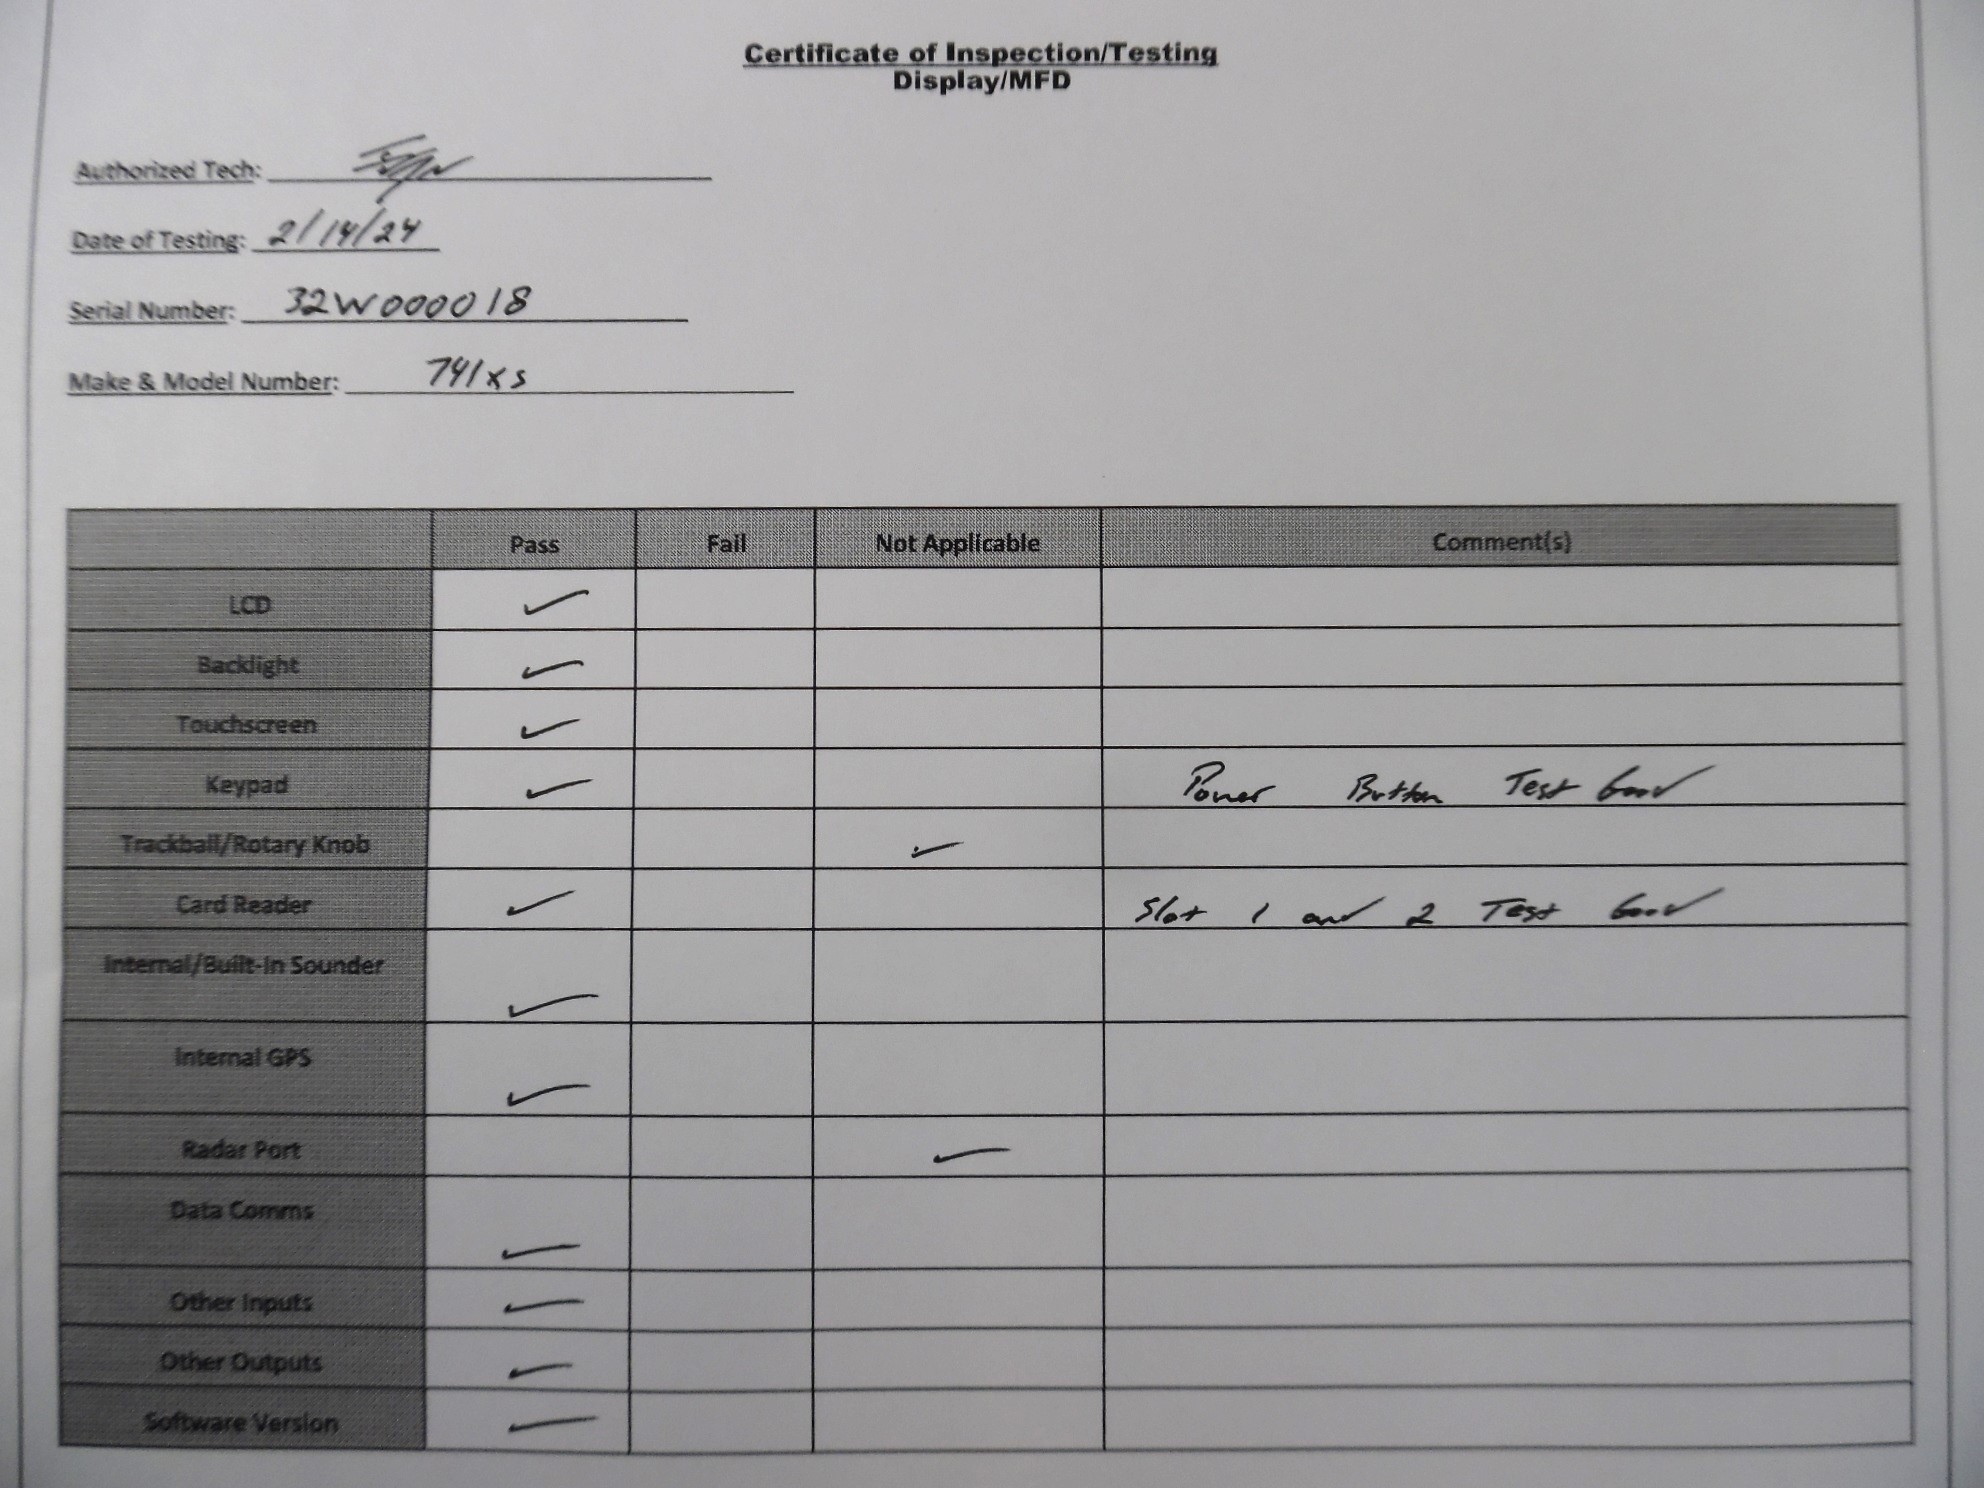 Certificate of Inspection/Testing
Display/MFD
Authorized Tech:
Date of Testing: 2/14/24
Serial Number: 32W000018
Make & Model Number: 741xs
Pass Fail Not Applicable Comment(s)
LCD ✓
Backlight ✓
Touchscreen ✓
Keypad ✓ Power Button Test Good
Trackball/Rotary Knob ✓
Card Reader ✓ Slot 1 and 2 Test Good
Internal/Built-In Sounder ✓
Internal GPS ✓
Radar Port ✓
Data Comms ✓
Other Inputs ✓
Other Outputs ✓
Software Version ✓